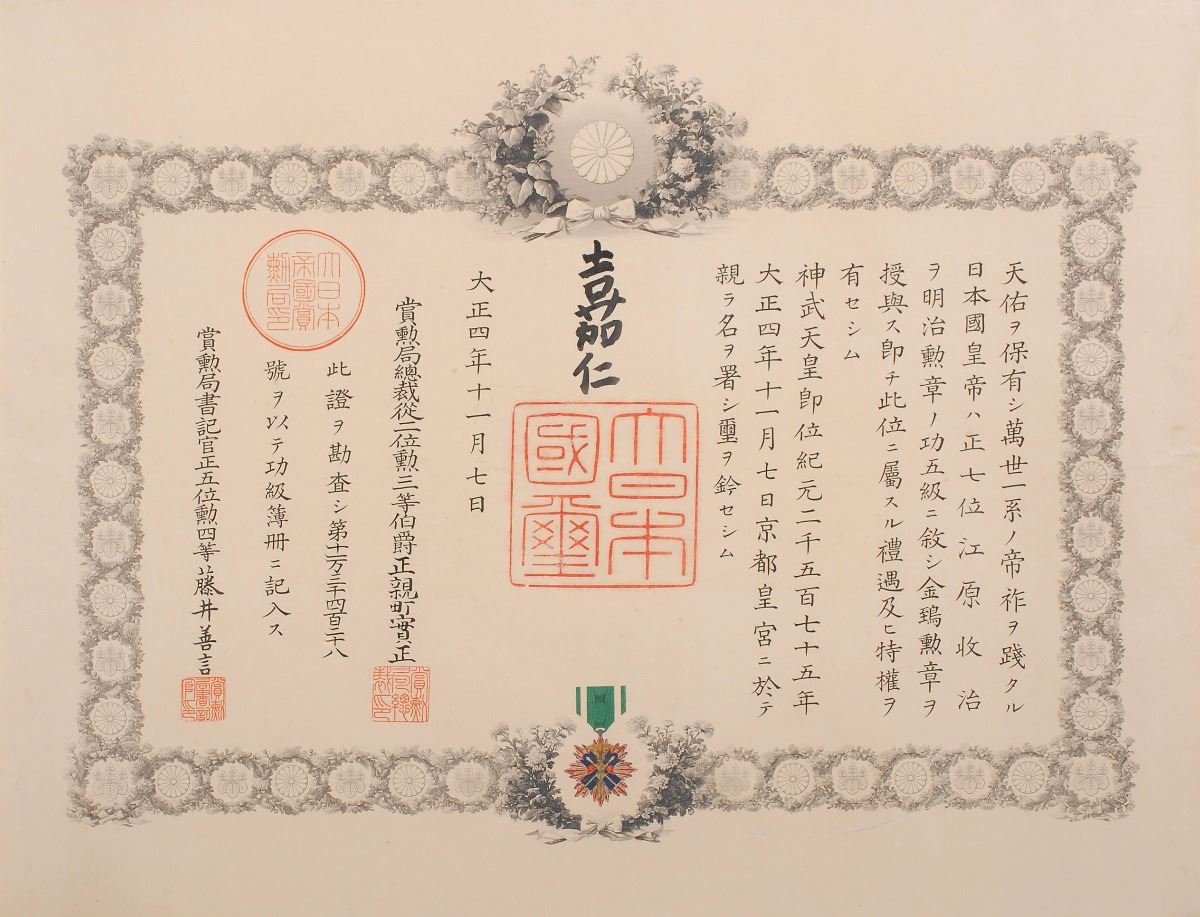 天佑ヲ保有シ萬世一系ノ帝祚ヲ踐タル
日本國皇帝ハ正七位江原收治
ヲ明治勲章ノ功五級ニ敘シ金鵄勲章ヲ
授與ス卽チ此位ニ屬スル禮遇及ヒ特權ヲ
有セシム
神武天皇卽位紀元二千五百七十五年
大正四年十一月七日京都皇宮ニ於テ
親ラ名ヲ署シ璽ヲ鈐セシム
嘉仁
大日本
國璽
大正四年十一月七日
賞勲局總裁從二位勲三等伯爵正親町實正
賞勲
局總
裁印
大日本
帝國賞
勲局印
此證ヲ勘査シ第十二万三千四百三十八
號ヲ以テ功級簿冊ニ記入ス
賞勲局書記官正五位勲四等藤井善言
賞勲
局書記
官印